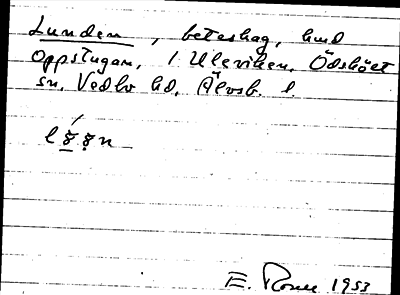 Lunden, beteshag, hmd
Oppstugan, 1 Uleviken, Ödskölt
sn, Vedbo hd, Älvsb. l.
E. 1953